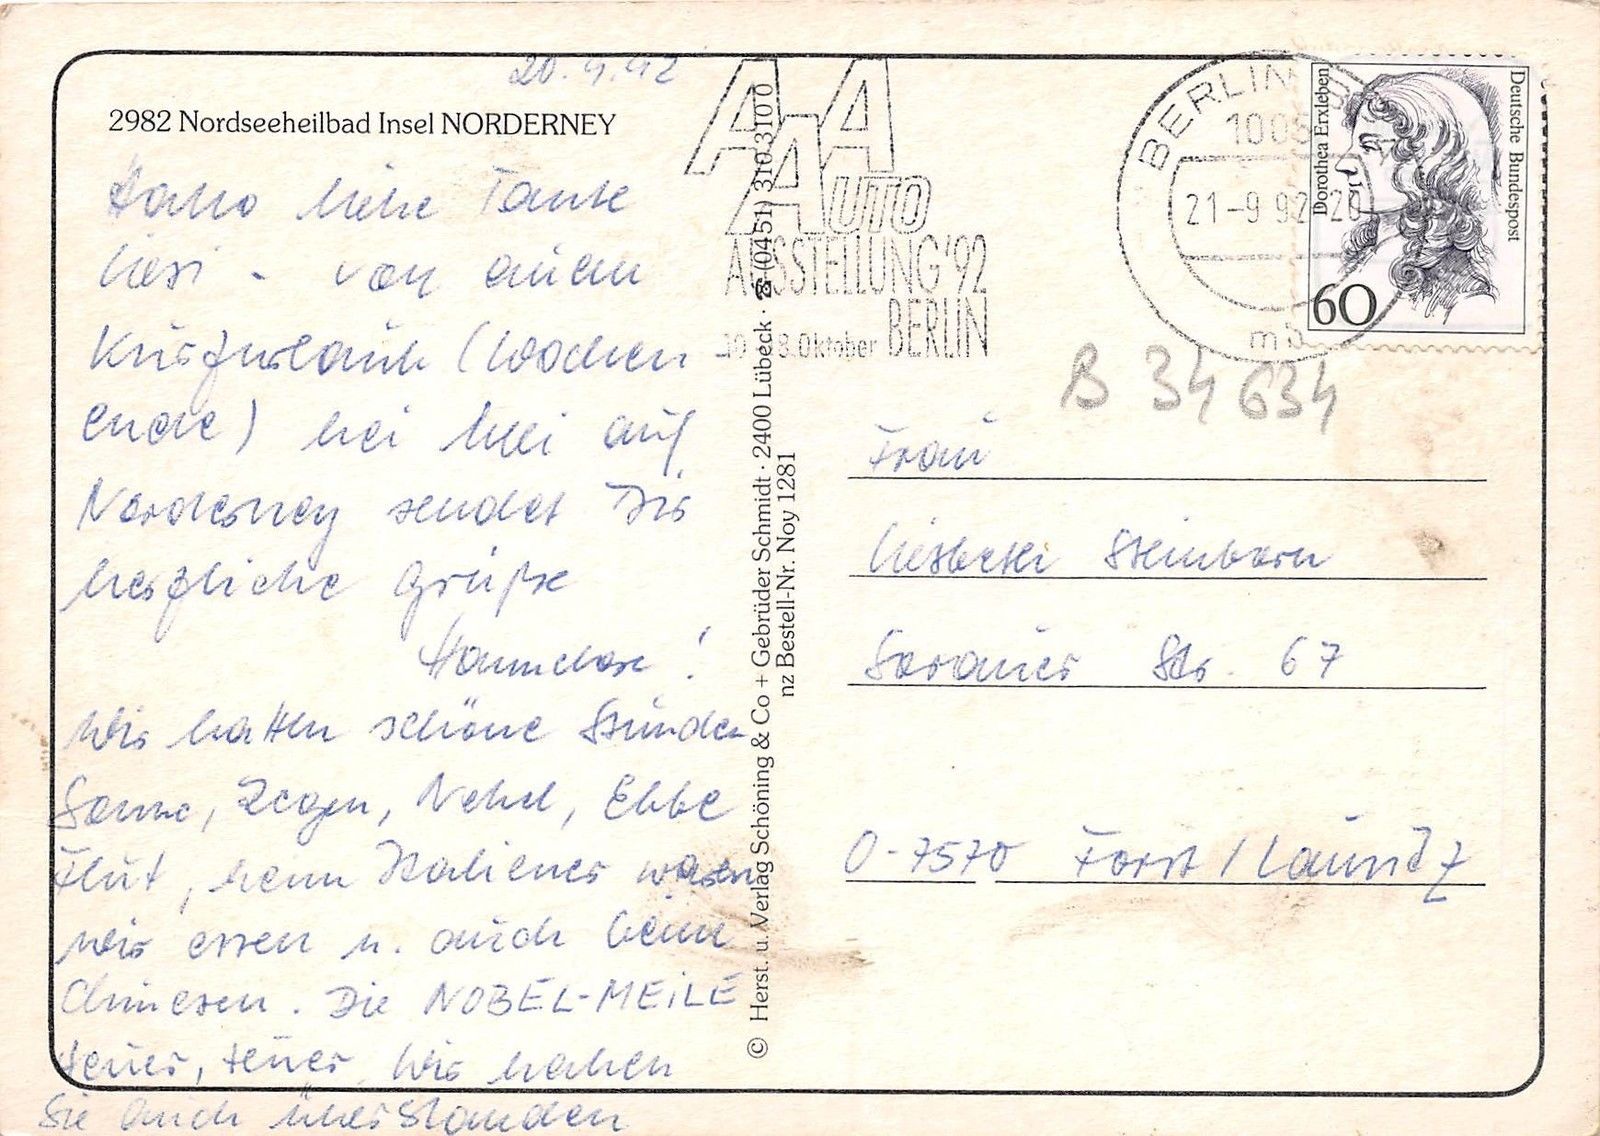 20.9.92
2982 Nordseeheilbad Insel NORDERNEY
Hallo liebe Tante
Liesi - von einem
Kurzurlaub (Wochen
ende) bei auf
Norderney sendet Dir
herzliche Grüße
Hannelore!
Wir hatten schöne Stunden
Sonne, Regen, Nebel, Ebbe
Flut, beim Italiener waren
wir essen u. auch beim
Chinesen. Die NOBEL-MEILE
teuer, teuer, wir haben
Sie auch überstanden
© Herst. u. Verlag Schöning & Co + Gebrüder Schmidt · 2400 Lübeck · ☎ (0451) 310310 0
nz Bestell-Nr. Noy 1281
AAA
AUTO
AUSSTELLUNG '92
BERLIN
Oktober
BERLIN
21-9 92
Dorothea Erxleben
Deutsche Bundespost
60
B 34 634
Frau
Liesbeth Steinborn
Sorauer Str. 67
O-7570 Forst / Lausitz